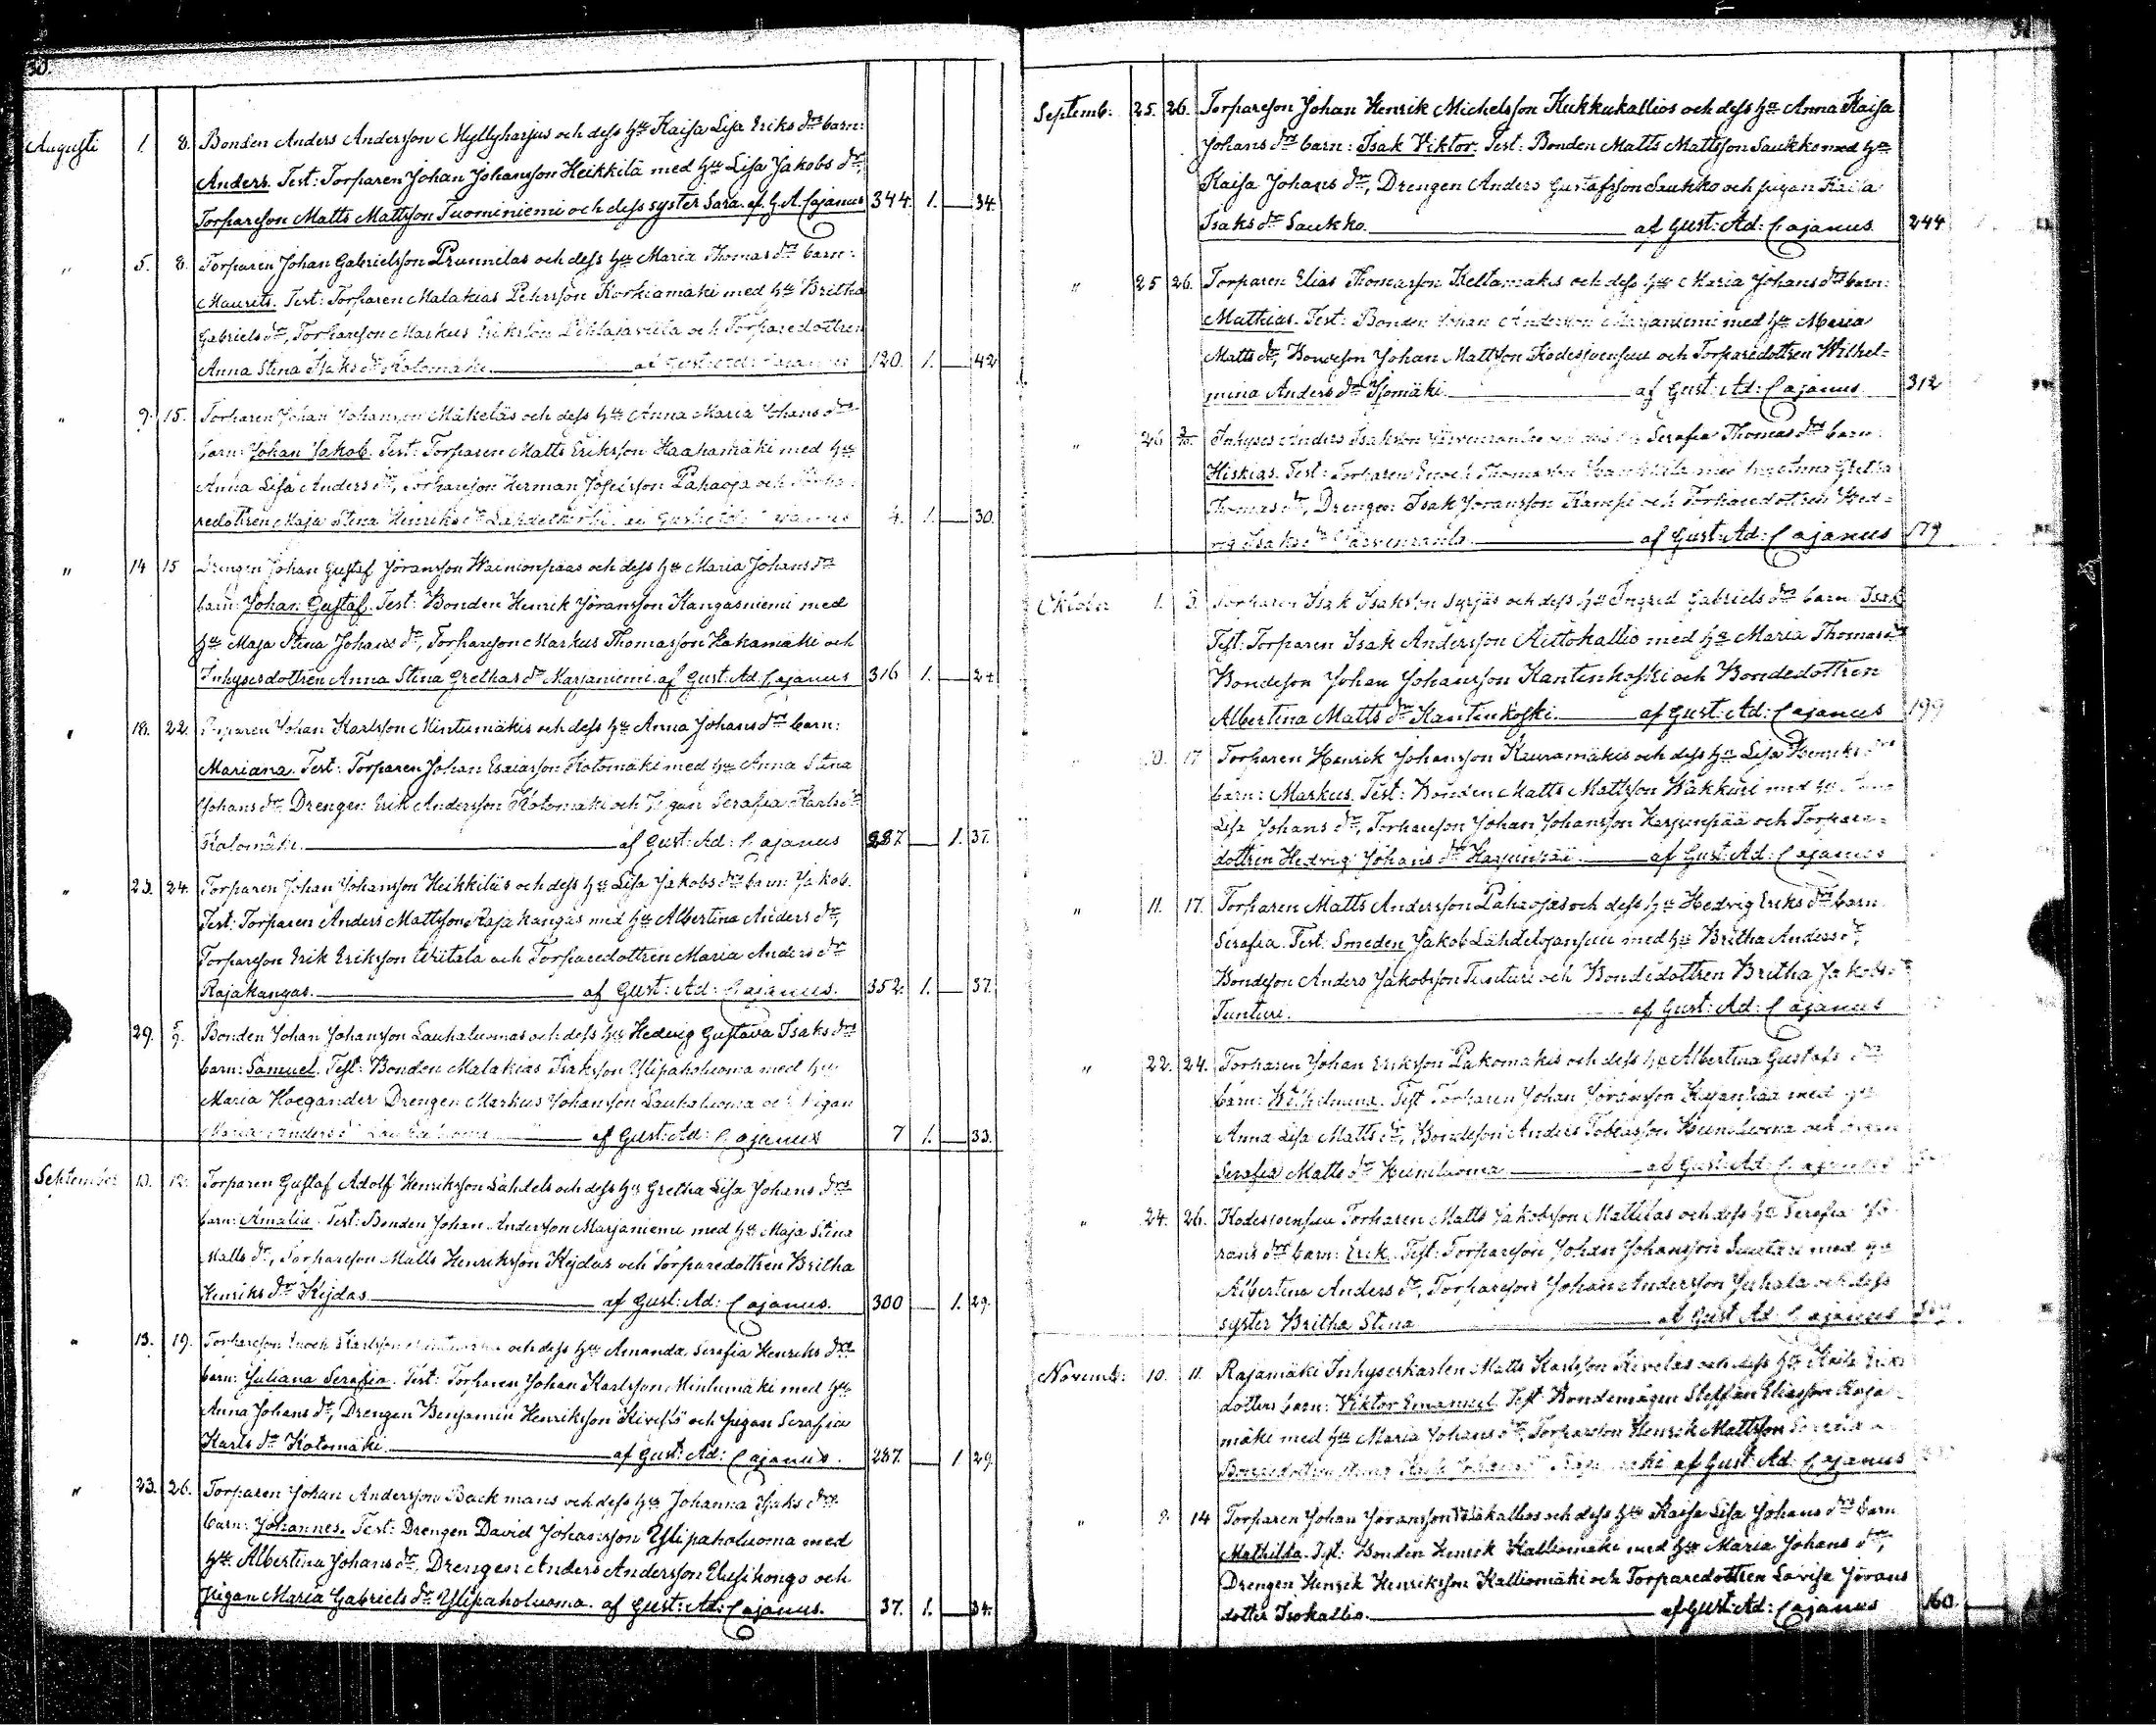 30.
Augusti 1. 8. Bonden Anders Andersson Myllyharjus och dess hu Kaisa Lisa Eriks drs barn:
Anders. Test: Torparen Johan Johansson Heikkilä med hu Lisa Jakobs dr,
Torpareson Matts Mattsson Tuominiemi och dess syster Sara. af G. A. Cajanus 344. 1. — 34.
" 5. 8. Torparen Johan Gabrielsson Prunnilas och dess hu Maria Thomas drs barn:
Maurits. Test: Torparen Malakias Pehrsson Korkiamäki med hu Britha
Gabriels dr, Torpareson Markus Eriksson och Torparedottren
Anna Stina Isaks dr Kotomäki — af Gust: Ad: Cajanus 120. 1. — 42
" 9. 15. Torparen Johan Johansson Mäkeläs och dess hu Anna Maria Johans drs
barn: Johan Jakob. Test: Torparen Matts Eriksson Haahamäki med hu
Anna Lisa Anders dr, Torpareson Herman Josefsson Pahaoja och Torpa-
redottren Maja Stina Henriks dr af Gust: Ad: Cajanus 4. 1. — 30.
" 14 15 Drengen Johan Gustaf Jöransson Wainionpääs och dess hu Maria Johans drs
barn: Johan Gustaf. Test: Bonden Henrik Jöransson Kangasniemi med
hu Maja Stina Johans dr, Torpareson Markus Thomasson Hakamäki och
Inhysesdottren Anna Stina Grethas dr Marjaniemi. af Gust: Ad: Cajanus 316 1. — 24
" 18. 22. Torparen Johan Karlsson Mintumäkis och dess hu Anna Johans drs barn:
Mariana. Test: Torparen Johan Esaiasson Kotomäki med hu Anna Stina
Johans dr, Drengen Erik Andersson Kotomäki och Pigan Serafia Karls dr
Kotomäki. — af Gust: Ad: Cajanus 287 — 1. 37.
" 23. 24. Torparen Johan Johansson Heikkiläs och dess hu Lisa Jakobs drs barn: Jakob.
Test: Torparen Anders Mattsson Rajakangas med hu Albertina Anders dr,
Torpareson Erik Eriksson Uitala och Torparedottren Maria Anders dr
Rajakangas. — af Gust: Ad: Cajanus. 352. 1. — 37.
29. 5/9. Bonden Johan Johansson Lauhaluomas och dess hu Hedvig Gustava Isaks drs
barn: Samuel. Test: Bonden Malakias Isaksson Ylipaholuoma med hu
Maria Hoegander Drengen Markus Johansson Lauhaluoma och Pigan
Maria Anders dr Lauhaluoma — af Gust: Ad: Cajanus 7 1. — 33.
September 13. 12. Torparen Gustaf Adolf Henriksson Lähdels och dess hu Gretha Lisa Johans drs
barn: Amalia. Test: Bonden Johan Andersson Marjaniemi med hu Maja Stina
Matts dr, Torpareson Matts Henriksson Kejdas och Torparedottren Britha
Henriks dr Kejdas — af Gust: Ad: Cajanus. 300 — 1. 29.
" 13. 19. Torpareson Enoch Karlsson och dess hu Amanda Serafia Henriks drs
barn: Juliana Serafia. Test: Torparen Johan Karlsson Mintumäki med hu
Anna Johans dr, Drengen Benjamin Henriksson och pigan Serafia
Karls dr Kotomäki. — af Gust: Ad: Cajanus. 287. — 1 29.
" 23. 26. Torparen Johan Andersson Backmans och dess hu Johanna Isaks drs
barn: Johannes. Test: Drengen David Johansson Ylipaholuoma med
hu Albertina Johans dr, Drengen Anders Andersson och
Pigan Maria Gabriels dr Ylipaholuoma. af Gust: Ad: Cajanus. 37. 1. — 34.
31
Septemb: 25. 26. Torpareson Johan Henrik Michelsson Kukkukallios och dess hu Anna Kaisa
Johans drs barn: Isak Viktor. Test: Bonden Matts Mattsson Saukko med hu
Kaisa Johans dr, Drengen Anders Gustafsson Saukko och pigan Kaisa
Isaks dr Saukko. — af Gust: Ad: Cajanus. 244
" 25 26. Torparen Elias Thomasson Keltamäkis och dess hu Maria Johans drs barn:
Mathias. Test: Bonden Johan Andersson Marjaniemi med hu Maria
Matts dr, Bondeson Johan Mattsson Kodesjoensuu och Torparedottren Wilhel-
mina Anders dr Isomäki. — af Gust: Ad: Cajanus 312
" 26 3/10. Inhyses Anders Isaksson och dess hu Serafia Thomas drs barn:
Hiskias. Test: Torparen Enoch Thomasson med hu Anna Gretha
Thomas dr, Drengen Isak Jöransson Kamppi och Torparedottren Hed-
vig Isaks dr — af Gust: Ad: Cajanus 179
Oktober 1. 3. Torparen Isak Isaksson Syrjäs och dess hu Ingrid Gabriels drs barn: Isak
Test: Torparen Isak Andersson Aittokallio med hu Maria Thomas dr
Bondeson Johan Johansson Kantenkoski och Bondedottren
Albertina Matts dr Kantenkoski. — af Gust: Ad: Cajanus 199
" 10. 17 Torparen Henrik Johansson Kauramäkis och dess hu Lisa Henriks drs
barn: Markus. Test: Bonden Matts Mattsson Wakkuri med hu Anna
Lisa Johans dr, Torpareson Johan Johansson Harjunpää och Torpare-
dottren Hedvig Johans dr Harjunpää. — af Gust: Ad: Cajanus
" 11. 17. Torparen Matts Andersson Pahaojas och dess hu Hedvig Eriks drs barn
Serafia. Test: Smeden Jakob Lähdelojansuu med hu Britha Anders dr,
Bondeson Anders Jakobsson Tunturi och Bondedottren Britha Jakobs dr
Tunturi. — af Gust: Ad: Cajanus
" 22. 24. Torparen Johan Eriksson Pakomäkis och dess hu Albertina Gustafs drs
barn: Wilhelmina. Test Torparen Johan Jöransson Kejanpää med hu
Anna Lisa Matts dr, Bondeson Anders Tobiasson Heiniluoma och pigan
Serafia Matts dr Heiniluoma — af Gust: Ad: Cajanus
" 24. 26. Kodesjoensuu Torparen Matts Jakobsson Mattilas och dess hu Serafia Jö-
rans drs barn: Erik. Test: Torpareson Johan Johansson med hu
Albertina Anders dr, Torpareson Johan Andersson Juhala och dess
syster Britha Stina — af Gust: Ad: Cajanus
Novemb: 10. 11. Rajamäki Inhyserkarlen Matts Karlsson Kivelas och dess hu Kaisa Eriks
dotters barn: Viktor Emanuel. Test Bondemågen Steffan Eliasson Raja-
mäki med hu Maria Johans dr, Torpareson Henrik Mattsson
Bondedottren af Gust: Ad: Cajanus
" 9. 14 Torparen Johan Jöransson och dess hu Kaisa Lisa Johans drs barn
Mathilda. Test: Bonden Henrik Kalliomäki med hu Maria Johans dr,
Drengen Henrik Henriksson Kalliomäki och Torparedottren Lovisa Jörans
dotter Isokallio. — af Gust: Ad: Cajanus 160.